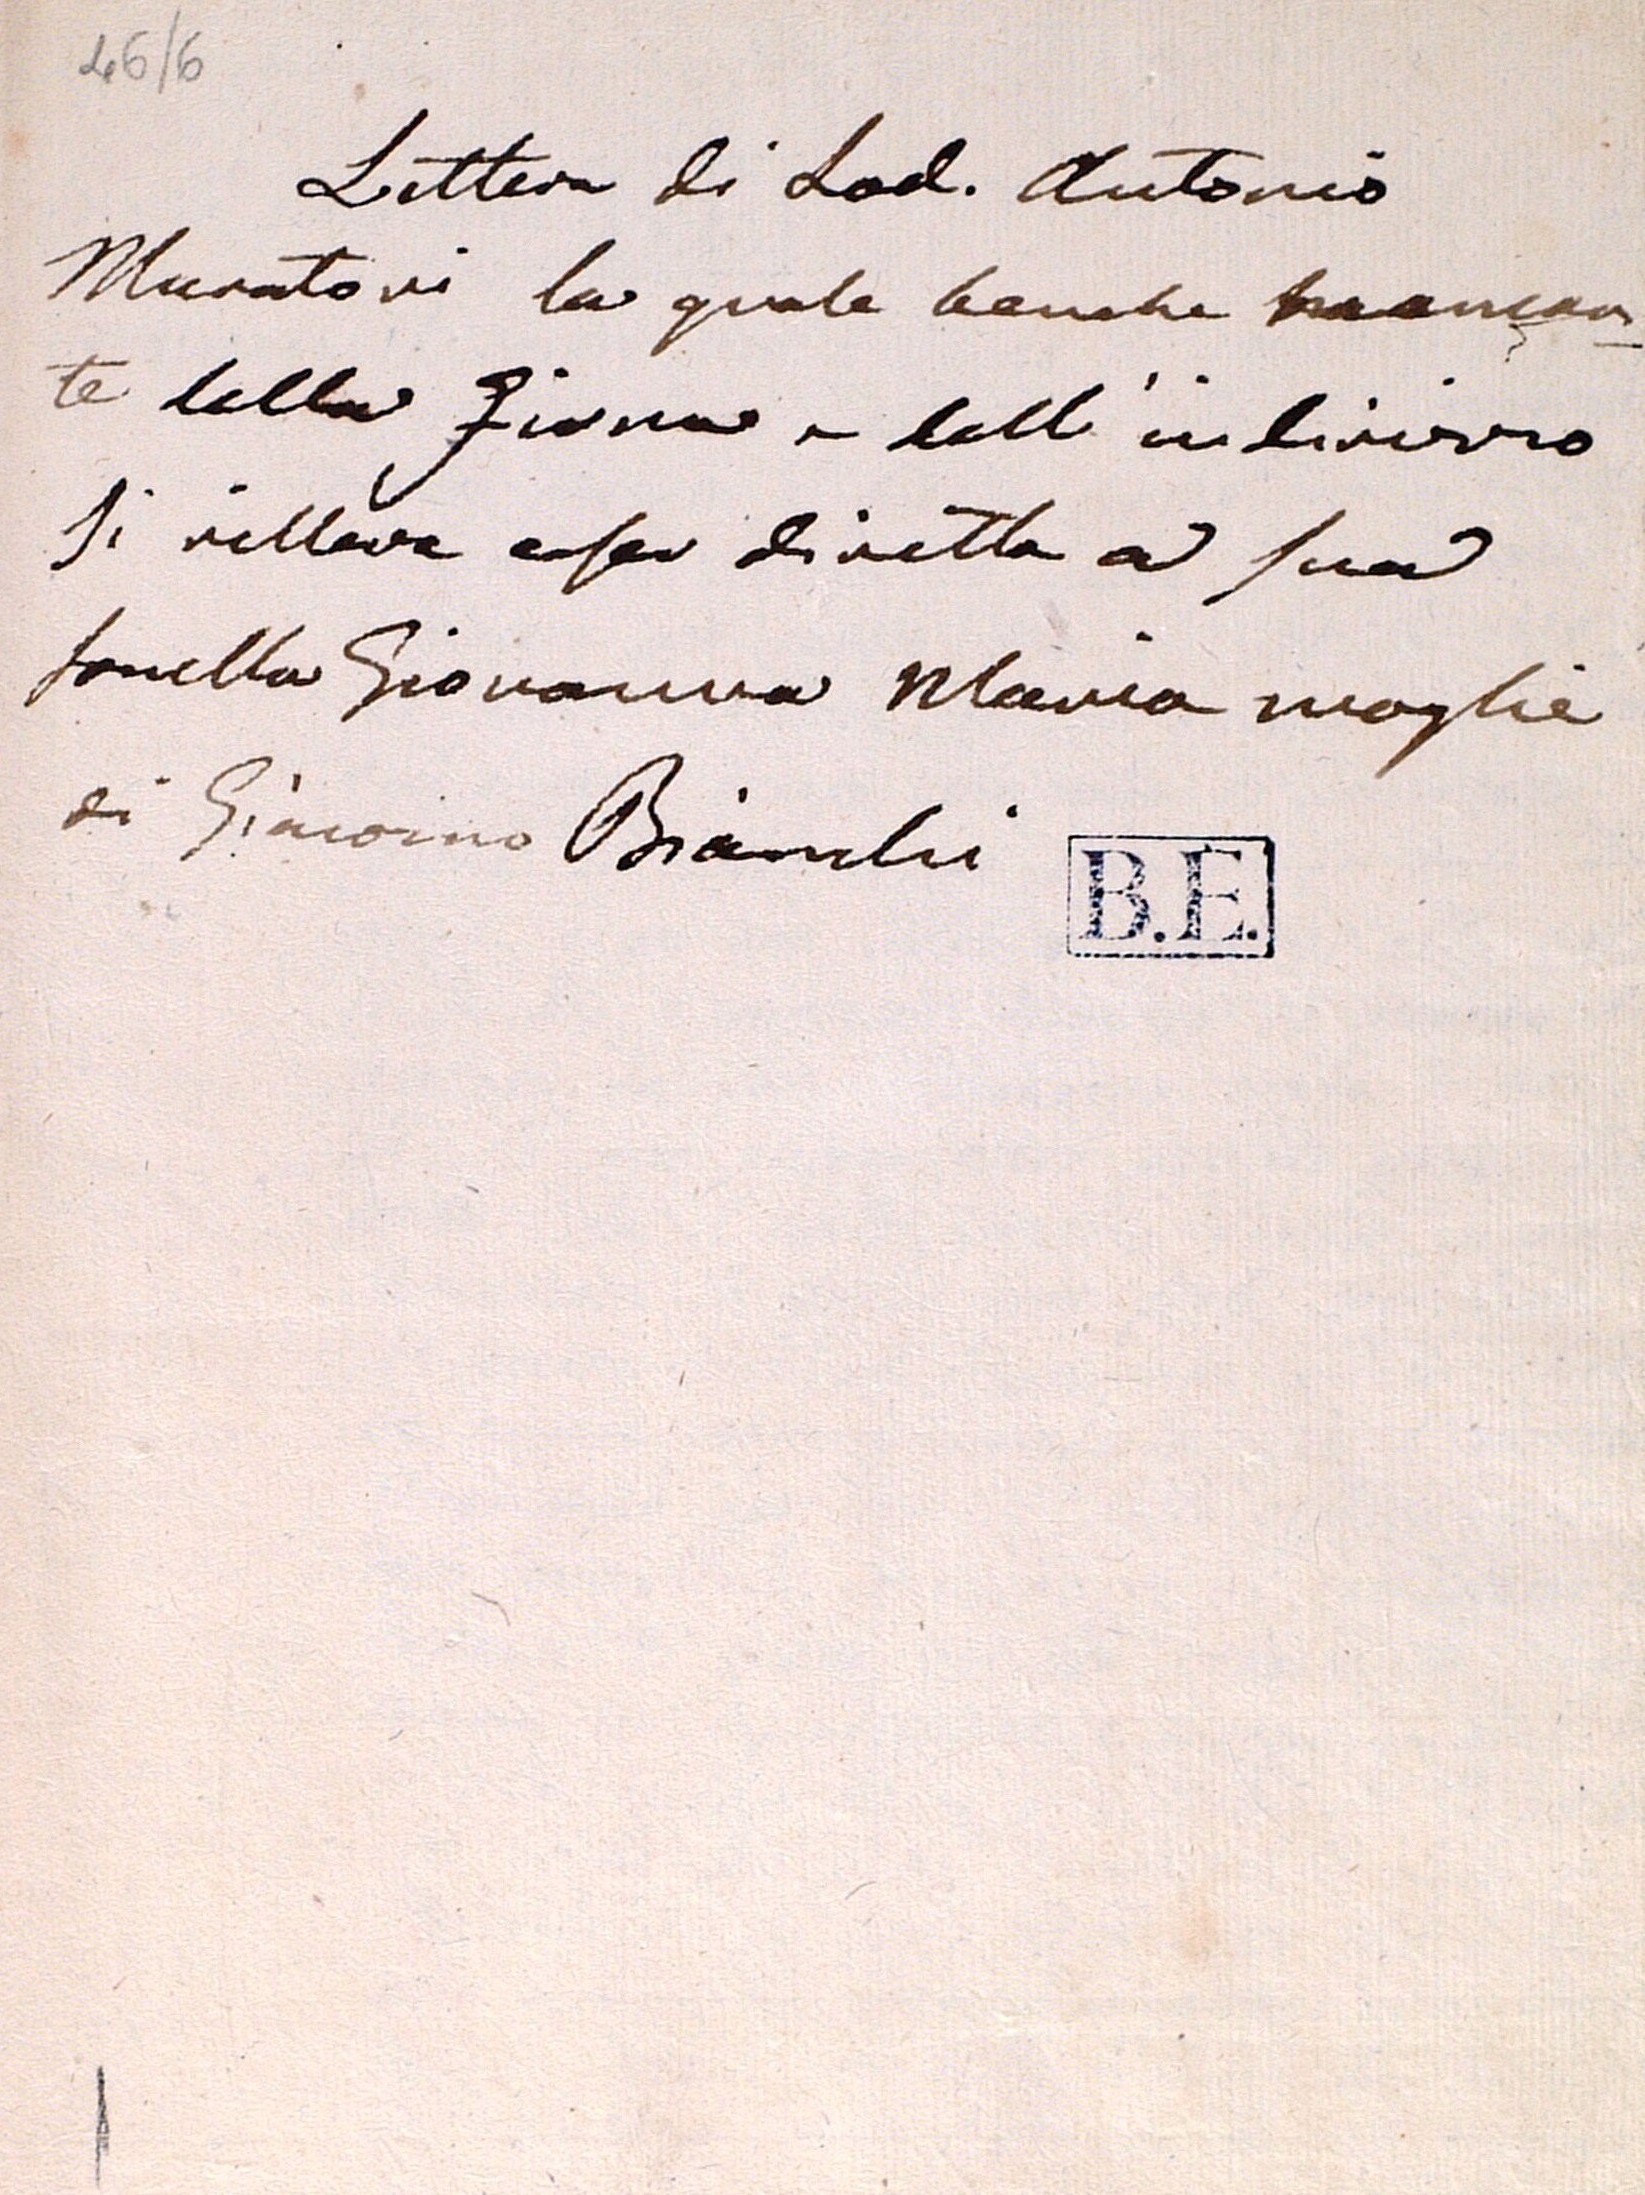 46/6
Lettera di Lod. Antonio
Muratori la quale benche mancan
te della Firma e dell'indirizzo
si rilleva esser diretta a sua
sorella Giovanna Maria moglie
di Giacomo Bianchi
B.E.